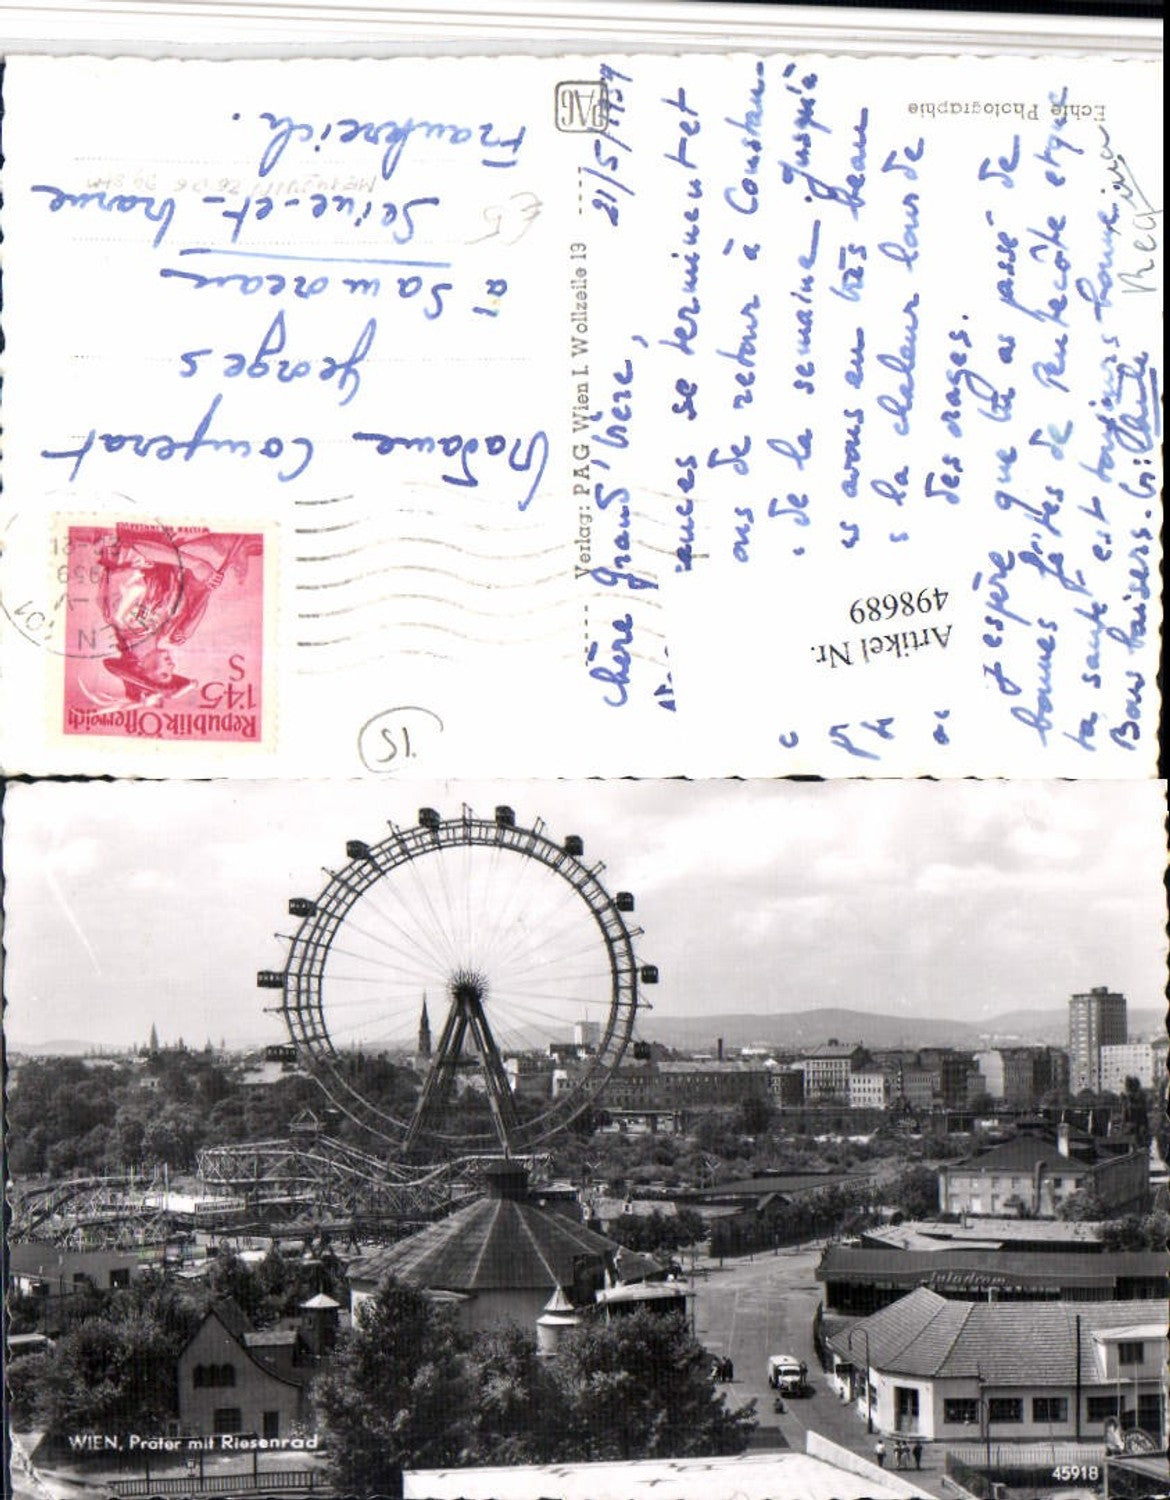 Echte Photographie
PAG
Verlag: PAG Wien I. Wollzeile 19
21/5/1959
Chère grand'mère,
se terminent et
ons de retour à Constan-
de la semaine. Jusqu'à
avons eu très beau
la chaleur lours de
des orages.
J'espère que tu as passé de
bonnes fêtes de Pentecôte et que
ta santé est toujours bonne
Bons baisers.
Artikel Nr.
498689
Madame
Georges
à Samoreau
Seine-et-Marne
Frankreich.
Republik Österreich
1'45
S
15
WIEN, Prater mit Riesenrad
Autodrom
45918